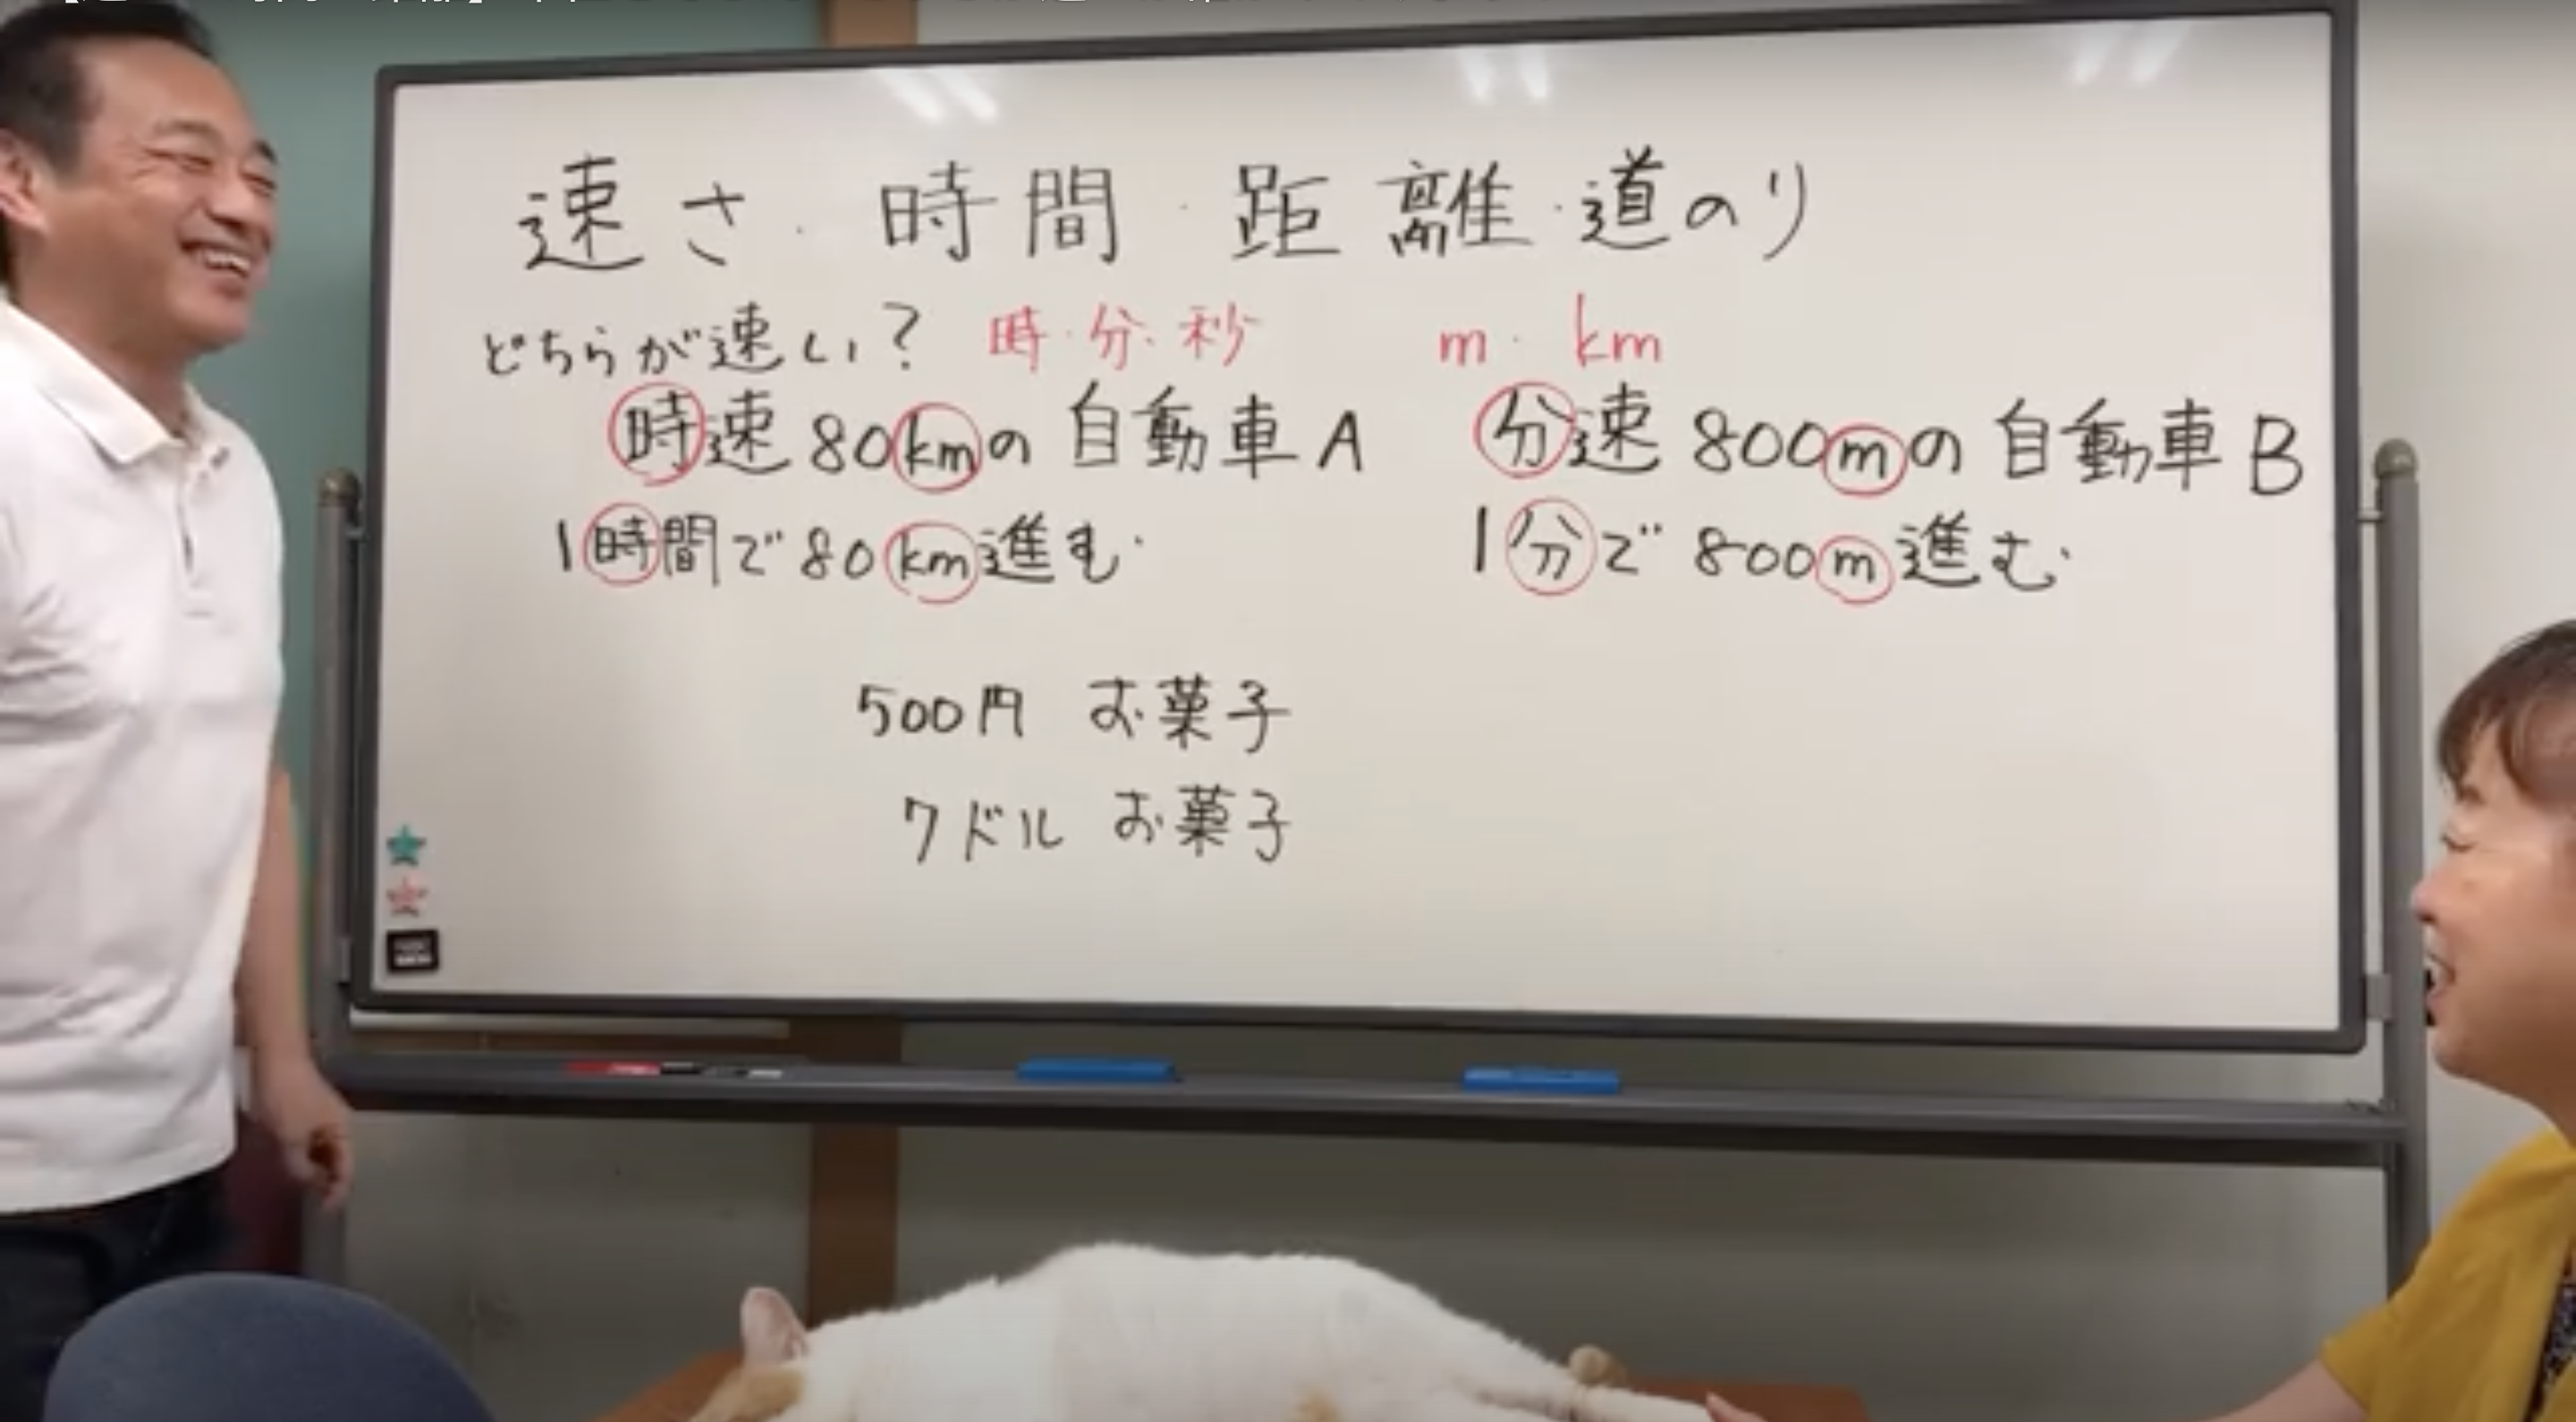 速さ・時間・距離・道のり
どちらが速い? 時・分・秒 m・km
時速80kmの自動車A 分速800mの自動車B
1時間で80km進む. 1分で800m進む.
500円 お菓子
7ドル お菓子